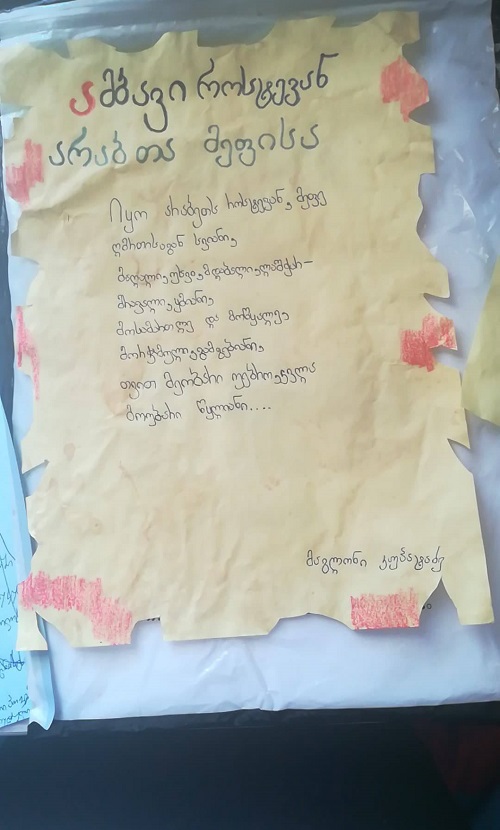 ამბავი როსტევან
არაბთა მეფისა
იყო არაბეთს როსტევან, მეფე
ღმრთისაგან სვიანი,
მაღალი, უხვი, მდაბალი, ლაშქარ-
მრავალი, ყმიანი,
მოსამართლე და მოწყალე,
მორჭმული, განგებიანი,
თვით მეომარი უებრო, კვლა
მოუბარი წყლიანი....
მაგლონი კუპატაძე